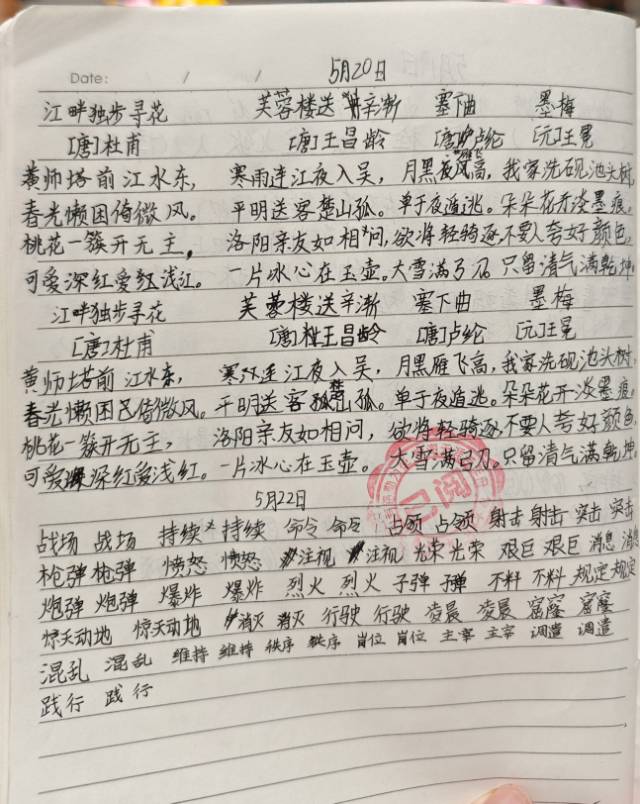 Date: / /
5月20日
江畔独步寻花 芙蓉楼送辛渐 塞下曲 墨梅
[唐]杜甫 [唐]王昌龄 [唐]卢纶 [元]王冕
黄师塔前江水东, 寒雨连江夜入吴, 月黑夜风高, 我家洗砚池头树,
春光懒困倚微风。 平明送客楚山孤。 单于夜遁逃。 朵朵花开淡墨痕。
桃花一簇开无主, 洛阳亲友如相问, 欲将轻骑逐, 不要人夸好颜色,
可爱深红爱红浅红。 一片冰心在玉壶。 大雪满弓刀 只留清气满乾坤。
江畔独步寻花 芙蓉楼送辛渐 塞下曲 墨梅
[唐]杜甫 [唐]王昌龄 [唐]卢纶 [元]王冕
黄师塔前江水东, 寒江连江夜入吴, 月黑雁飞高, 我家洗砚池头树,
春光懒困倚微风。 平明送客楚山孤。 单于夜遁逃。 朵朵花开淡墨痕。
桃花一簇开无主, 洛阳亲友如相问, 欲将轻骑逐, 不要人夸好颜色,
可爱深红爱浅红。 一片冰心在玉壶。 大雪满弓刀。 只留清气满乾坤。
已阅
5月22日
战场 战场 持续 持续 命令 命令 占领 占领 射击 射击 突击 突击
枪弹 枪弹 愤怒 愤怒 注视 注视 光荣 光荣 艰巨 艰巨 消息 消息
炮弹 炮弹 爆炸 爆炸 烈火 烈火 子弹 子弹 不料 不料 规定 规定
惊天动地 惊天动地 消灭 消灭 行驶 行驶 凌晨 凌晨 窟窿 窟窿
混乱 混乱 维持 维持 秩序 秩序 岗位 岗位 主宰 主宰 调遣 调遣
践行 践行